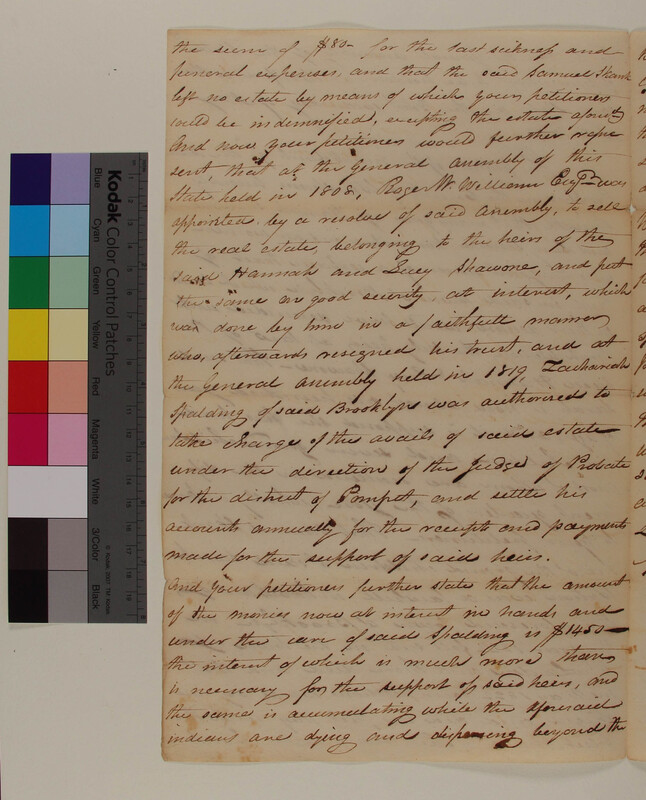 the sum of $80- for the last sickness and
funeral expenses, and that the said Samuel Shawn
left no estate by means of which your petitioners
could be indemnified, excepting the estate afores.d
And now your petitioners would further repre
sent, that at the General Assembly of this
State held in 1808, Roger W. William Esq.r was
appointed by a resolve of said Assembly, to sell
the real estate, belonging to the heirs of the
said Hannah and Lucy Shawone, and put
the same on good security, at interest, which
was done by him in a faithfull manner
who, afterwards resigned his trust, and at
the General Assembly held in 1819, Zachariah
Spalding of said Brooklyn was authorized to
take charge of the avails of said estate
under the direction of the Judge of Probate
for the district of Pomfret, and settle his
accounts annually for the receipts and payments
made for the support of said heirs.
And your petitioners further state that the amount
of the monies now at interest in hands and
under the care of said Spalding is $1450-
the interest of which is much more than
is necessary for the support of said heirs, and
the same is accumulating while the aforesaid
indians are dying and dispersing beyond the
Kodak Color Control Patches
Blue
Cyan
Green
Yellow
Red
Magenta
White
3/Color
Black